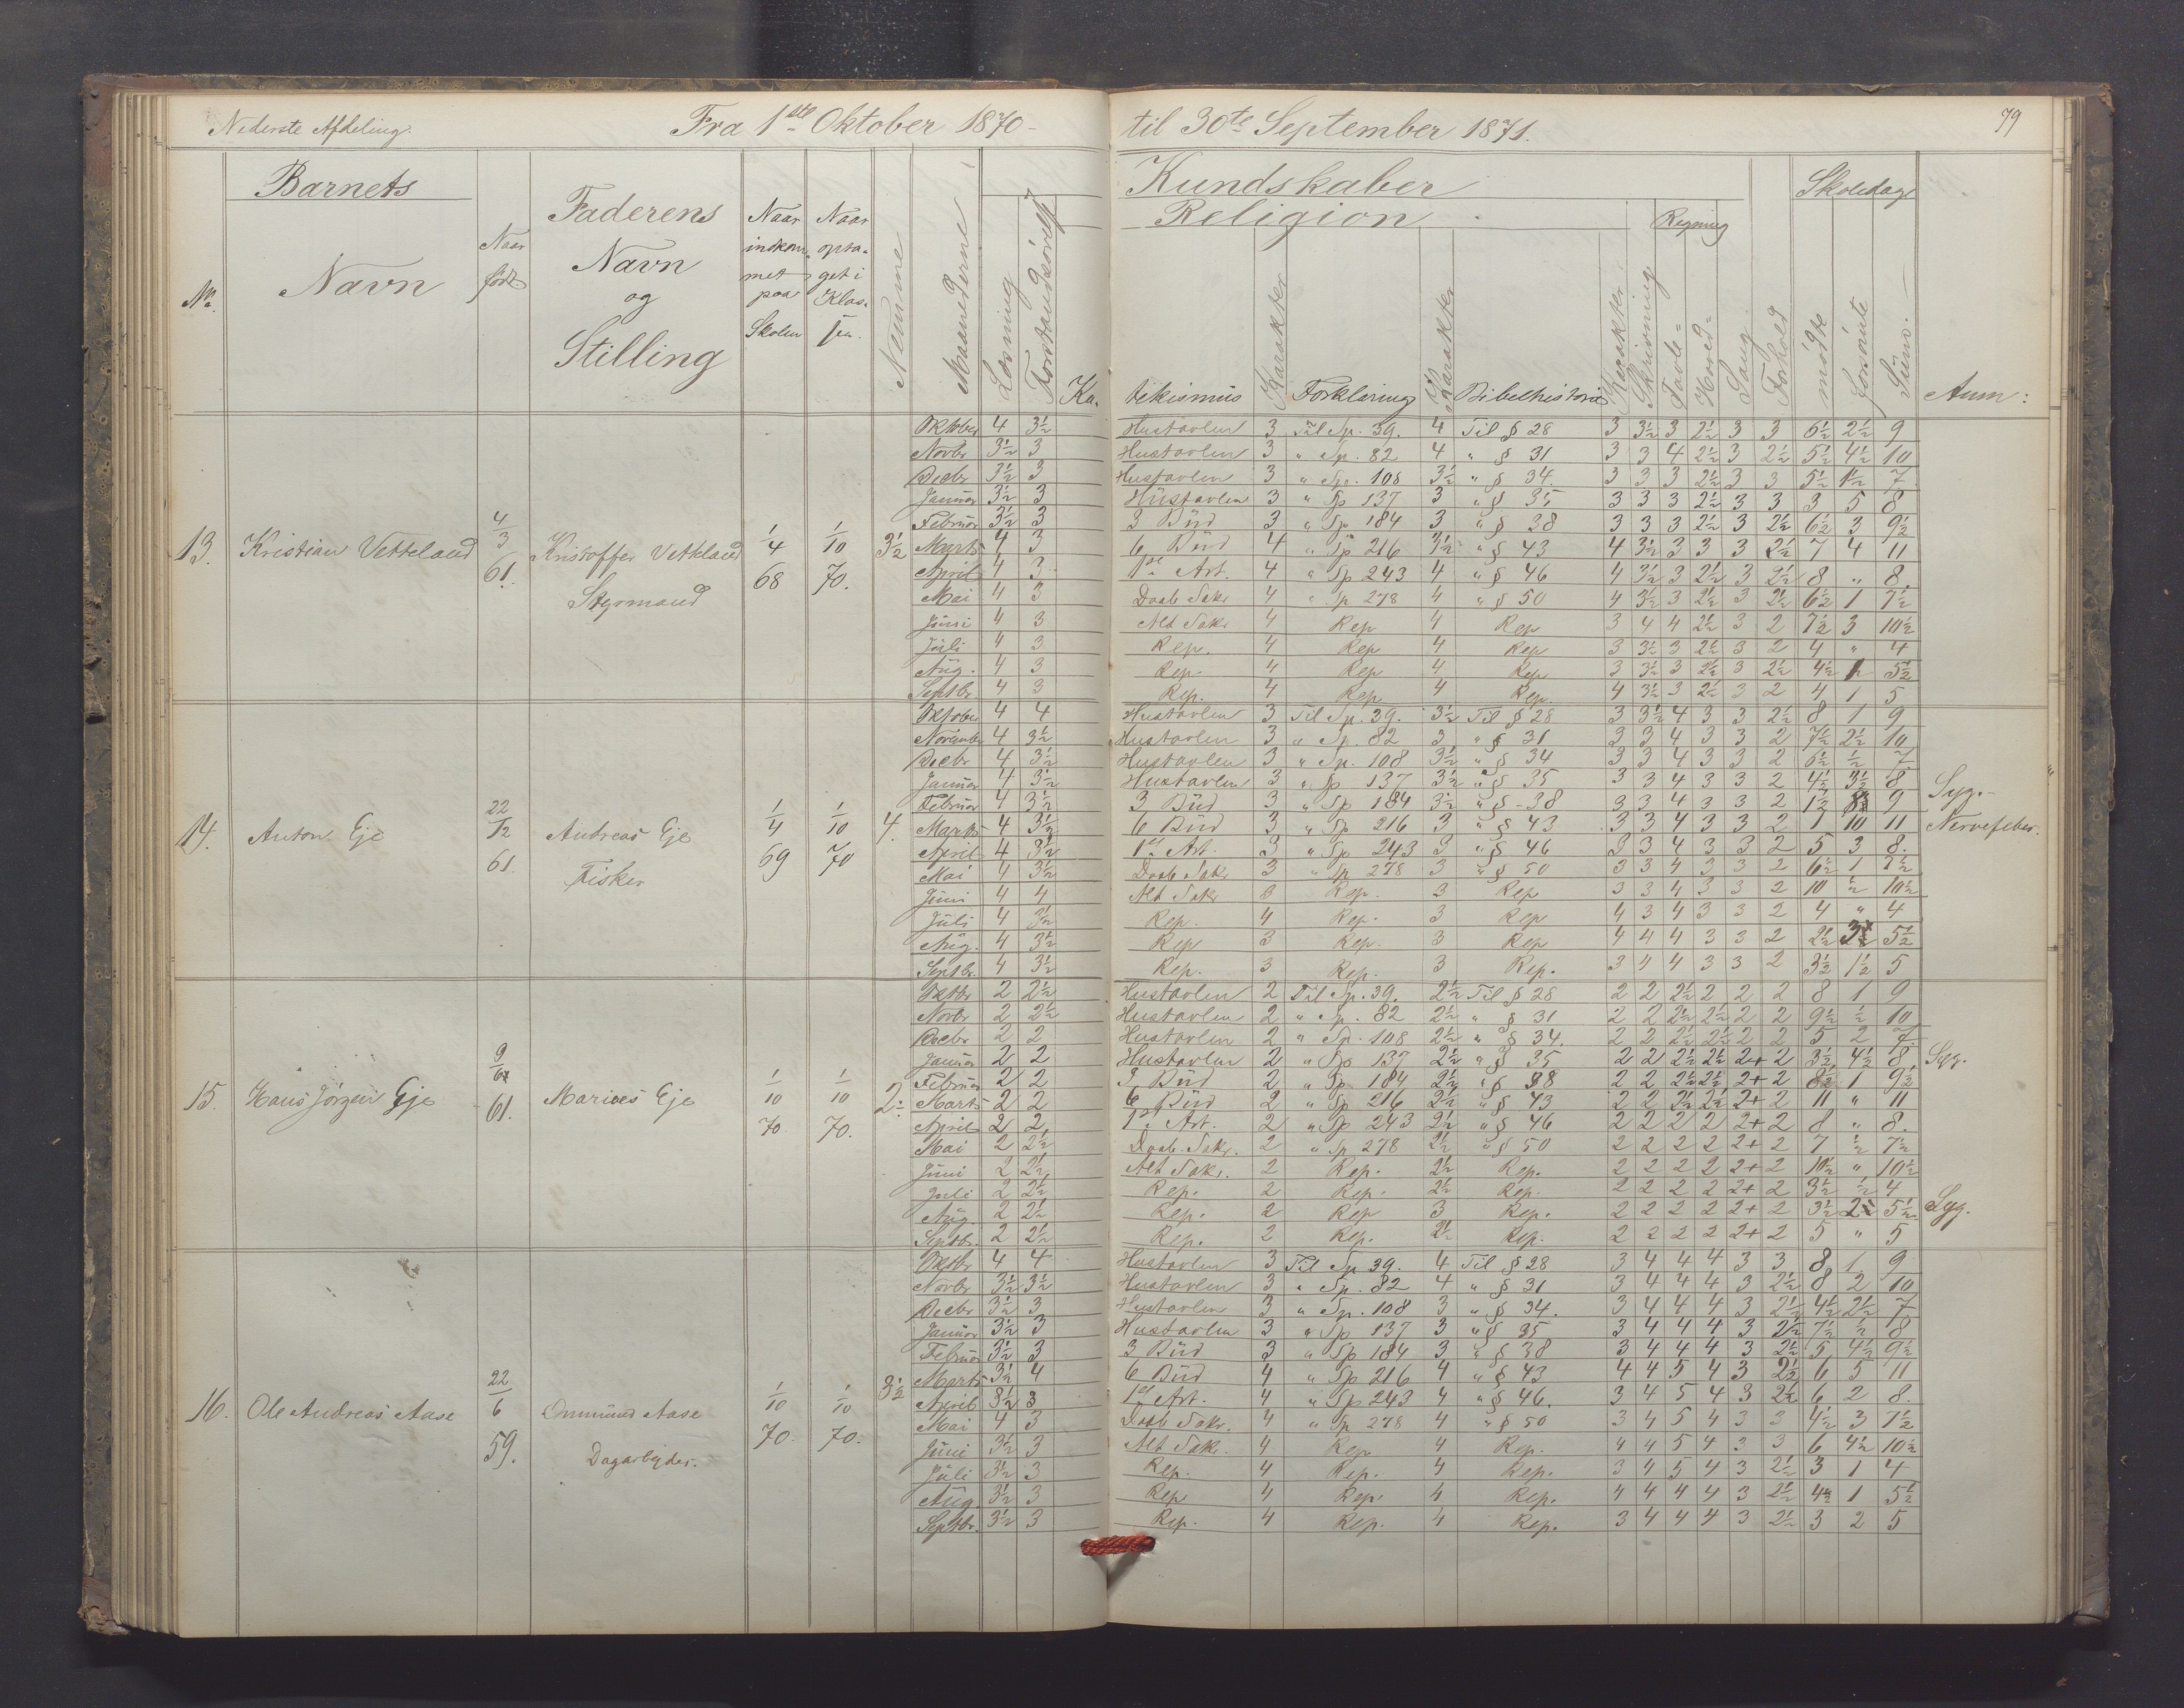 Nederste Afdeling. Fra 1ste Oktober 1870 - til 30te September 1871. 79
Barnets Kundskaber Skoledage
Faderens Naar Naar Religion Regning
Naar Navn indkom- opta-
No. Navn født og met paa get i Klas- Numme Maanederne Læsning Forstandsøvelse
Stilling Skolen sen.
Ka- tekismus Karakter Forklaring Karakter Bibelhistorie Karakter Skrivning Tavle= Hoved= Sang Forhold mødte forsømte Sum. Anm:
13. Kristian Vetteland 4/3 61. Kristoffer Vetteland Styrmand 1/4 68 1/10 70. 3½
Oktober 4 3½ Hustavlen 3 Til Sp. 39. 4 Til § 28 3 3½ 3 2½ 3 3 6½ 2½ 9
Novbr 3½ 3 Hustavlen 3 " Sp. 82 4 " § 31 3 3 4 2½ 3 2½ 5½ 4½ 10
Decbr 3½ 3 Hustavlen 3 " Sp. 108 3½ " § 34. 3 3 3 2½ 3 3 5½ 1½ 7
Januar 3½ 3 Hustavlen 3 " Sp 137 3 " § 35 3 3 3 2½ 3 3 3 5 8
Februar 3½ 3 3 Bud 3 " Sp 184 3 " § 38 3 3 3 2½ 3 2½ 6½ 3 9½
Marts 4 3 6 Bud 4 " Sp 216 3½ " § 43 4 3½ 3 3 3 2½ 7 4 11
April 4 3 1ste Art. 4 " Sp 243 4 " § 46 4 3½ 3 2½ 3 2½ 8 " 8.
Mai 4 3 Daab Sakr 4 " Sp 278 4 " § 50 4 3½ 3 2½ 3 2½ 6½ 1 7½
Juni 4 3 Alt Sakr 4 Rep 4 Rep 3 4 4 2½ 3 2 7½ 3 10½
Juli 4 3 Rep. 4 Rep 4 Rep 3 3½ 3 2½ 3 2 4 " 4
Aug. 4 3 Rep. 4 Rep 4 Rep 3 3½ 3 2½ 3 2½ 4½ 1 5½
Septbr 4 3 Rep. 4 Rep 4 Rep. 4 3½ 3 2½ 3 2 4 1 5
14. Anton Eje 22/12 61. Andreas Eje Fisker 1/4 69 1/10 70 4.
Oktober 4 4 Hustavlen 3 Til Sp. 39. 3½ Til § 28 3 3½ 4 3 3 2½ 8 1 9
November 4 3½ Hustavlen 3 " Sp. 82 3 " § 31 3 3 4 3 3 2 7½ 2½ 10
Decbr 4 3½ Hustavlen 3 " Sp. 108 3½ " § 34 3 3 4 3 3 2 6½ ½ 7
Januar 4 3½ Hustavlen 3 " Sp 137 3½ " § 35 3 3 4 3 3 2 4½ 3½ 8 Syg. -
Februar 4 3½ 3 Bud 3 " Sp 184 3½ " § - 38 3 3 4 3 3 2 1½ 8 9 Nervefeber.
Marts 4 3½ 6 Bud 3 " Sp 216 3 " § 43 3 3 4 3 3 2 1 10 11
April 4 3½ 1ste Art. 3 " Sp 243 3 " § 46 3 3 4 3 3 2 5 3 8.
Mai 4 3½ Daab Sakr 3 " Sp 278 3 " § 50 3 3 4 3 3 2 6½ 1 7½
Juni 4 4 Alt Sakr 3 Rep. 3 Rep 3 3 4 3 3 2 10 ½ 10½
Juli 4 3½ Rep. 4 Rep. 3 Rep 4 3 4 3 3 2 4 " 4
Aug. 4 3½ Rep 3 Rep. 3 Rep 4 4 4 3 3 2 2½ 3 5½
Septbr. 4 3½ Rep. 3 Rep. 3 Rep. 3 4 4 3 3 2 3½ 1½ 5
15. Hans Jørgen Eje 9/ 61. Marices Eje 1/10 70 1/10 70. 2.
Oktbr 2 2½ Hustavlen 2 Til Sp. 39. 2½ Til § 28 2 2 2½ 2 2 2 8 1 9
Novbr 2 2½ Hustavlen 2 " Sp. 82 2½ " § 31 2 2 2½ 2½ 2 2 9½ ½ 10
Decbr 2 2 Hustavlen 2 " Sp. 108 2½ " § 34. 2 2 2½ 2½ 2 2 5 2 7
Januar 2 2 Hustavlen 2 " Sp 137 2½ " § 35 2 2 2½ 2½ 2+ 2 3½ 4½ 8 Syg.
Februar 2 2 3 Bud 2 " Sp 184 2½ " § 38 2 2 2½ 2½ 2+ 2 8½ 1 9½
Marts 2 2 6 Bud 2 " Sp 216 2½ " § 43 2 2 2½ 2½ 2+ 2 11 " 11
April 2 2 1ste Art. 2 " Sp 243 2½ " § 46 2 2 2 2 2+ 2 8 " 8.
Mai 2 2½ Daab Sakr. 2 " Sp 278 2½ " § 50 2 2 2 2 2+ 2 7 ½ 7½
Juni 2 2½ Alt Sakr. 2 Rep. 2½ Rep. 2 2 2 2 2+ 2 10½ " 10½
Juli 2 2½ Rep. 2 Rep. 2½ Rep. 2 2 2 2 2+ 2 3½ ½ 4
Aug. 2 2½ Rep. 2 Rep 3 Rep. 2 2 2 2 2+ 2 3½ 2 5½ Syg.
Septbr. 2 2½ Rep. 2 Rep. 2½ Rep. 2 2 2 2 2+ 2 5 " 5
16. Ole Andreas Aase 22/6 59. Ommund Aase Dagarbejder. 1/10 70. 1/10 70. 3½
Oktbr 4 4 Hustavlen 3 Til Sp 39. 4 Til § 28 3 4 4 4 3 3 8 1 9
Novbr 3½ 3½ Hustavlen 3 " Sp. 82 4 " § 31 3 4 4 4 3 2½ 8 2 10
Decbr 3½ 3 Hustavlen 3 " Sp. 108 3 " § 34. 3 4 4 4 3 2½ 4½ 2½ 7
Januar 3½ 3 Hustavlen 3 " Sp 137 3 " § 35 3 4 4 4 3 2½ 7½ ½ 8
Februar 3½ 3 3 Bud 3 " Sp 184 3 " § 38 3 4 4 4 3 2½ 5 4½ 9½
Marts 3½ 4 6 Bud 4 " Sp 216 4 " § 43 4 4 5 4 3 2½ 6 5 11
April 3½ 3 1ste Art. 4 " Sp 243 4 " § 46. 3 4 5 4 3 2½ 6 2 8.
Mai 4 3 Daab Sakr. 4 " Sp 278 4 " § 50 3 4 5 4 3 3 4½ 3 7½
Juni 3½ 3 Alt Sakr. 4 Rep 4 Rep. 4 4 5 4 3 3 6 4½ 10½
Juli 3½ 3 Rep. 4 Rep. 4 Rep. 3 4 5 4 3 2½ 3 1 4
Aug. 3½ 3 Rep 4 Rep. 4 Rep. 4 4 4 4 3 2½ 4½ 1 5½
Septbr. 3½ 3 Rep. 4 Rep. 4 Rep. 3 4 4 4 3 2½ 3 2 5